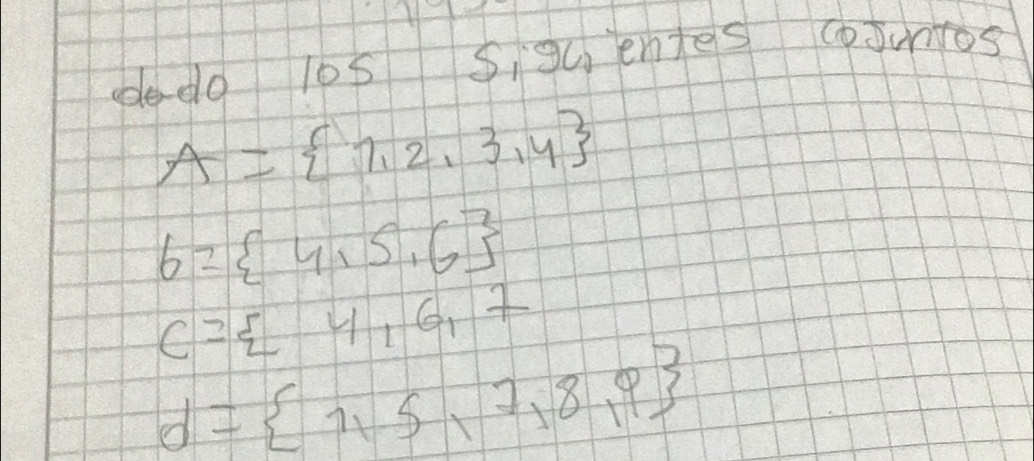 dado los siguientes cojuntos
A = { 1, 2, 3, 4}
b = { 4, 5, 6}
c = { 4, 6, 7
d = { 1, 5, 7, 8, 9}